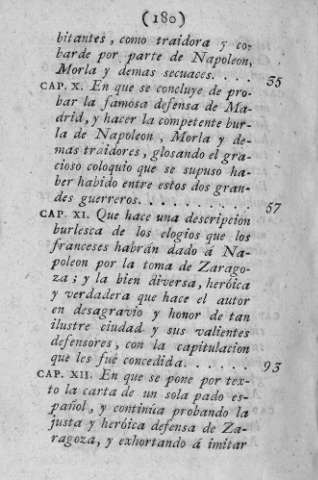 (180)
bitantes, como traidora y co-
barde por parte de Napoleon,
Morla y demas secuaces. . . . 35
CAP. X. En que se concluye de pro-
bar la famosa defensa de Ma-
drid, y hacer la competente bur-
la de Napoleon, Morla y de-
mas traidores, glosando el gra-
cioso coloquio que se supuso ha-
ber habido entre estos dos gran-
des guerreros. . . . . . . . . . 57
CAP. XI. Que hace una descripcion
burlesca de los elogios que los
franceses habrán dado á Na-
poleon por la toma de Zarago-
za; y la bien diversa, heróica
y verdadera que hace el autor
en desagravio y honor de tan
ilustre ciudad y sus valientes
defensores, con la capitulacion
que les fué concedida. . . . . . . 93
CAP. XII. En que se pone por tex-
to la carta de un sola pado es-
pañol, y continúa probando la
justa y heróica defensa de Za-
ragoza, y exhortando á imitar